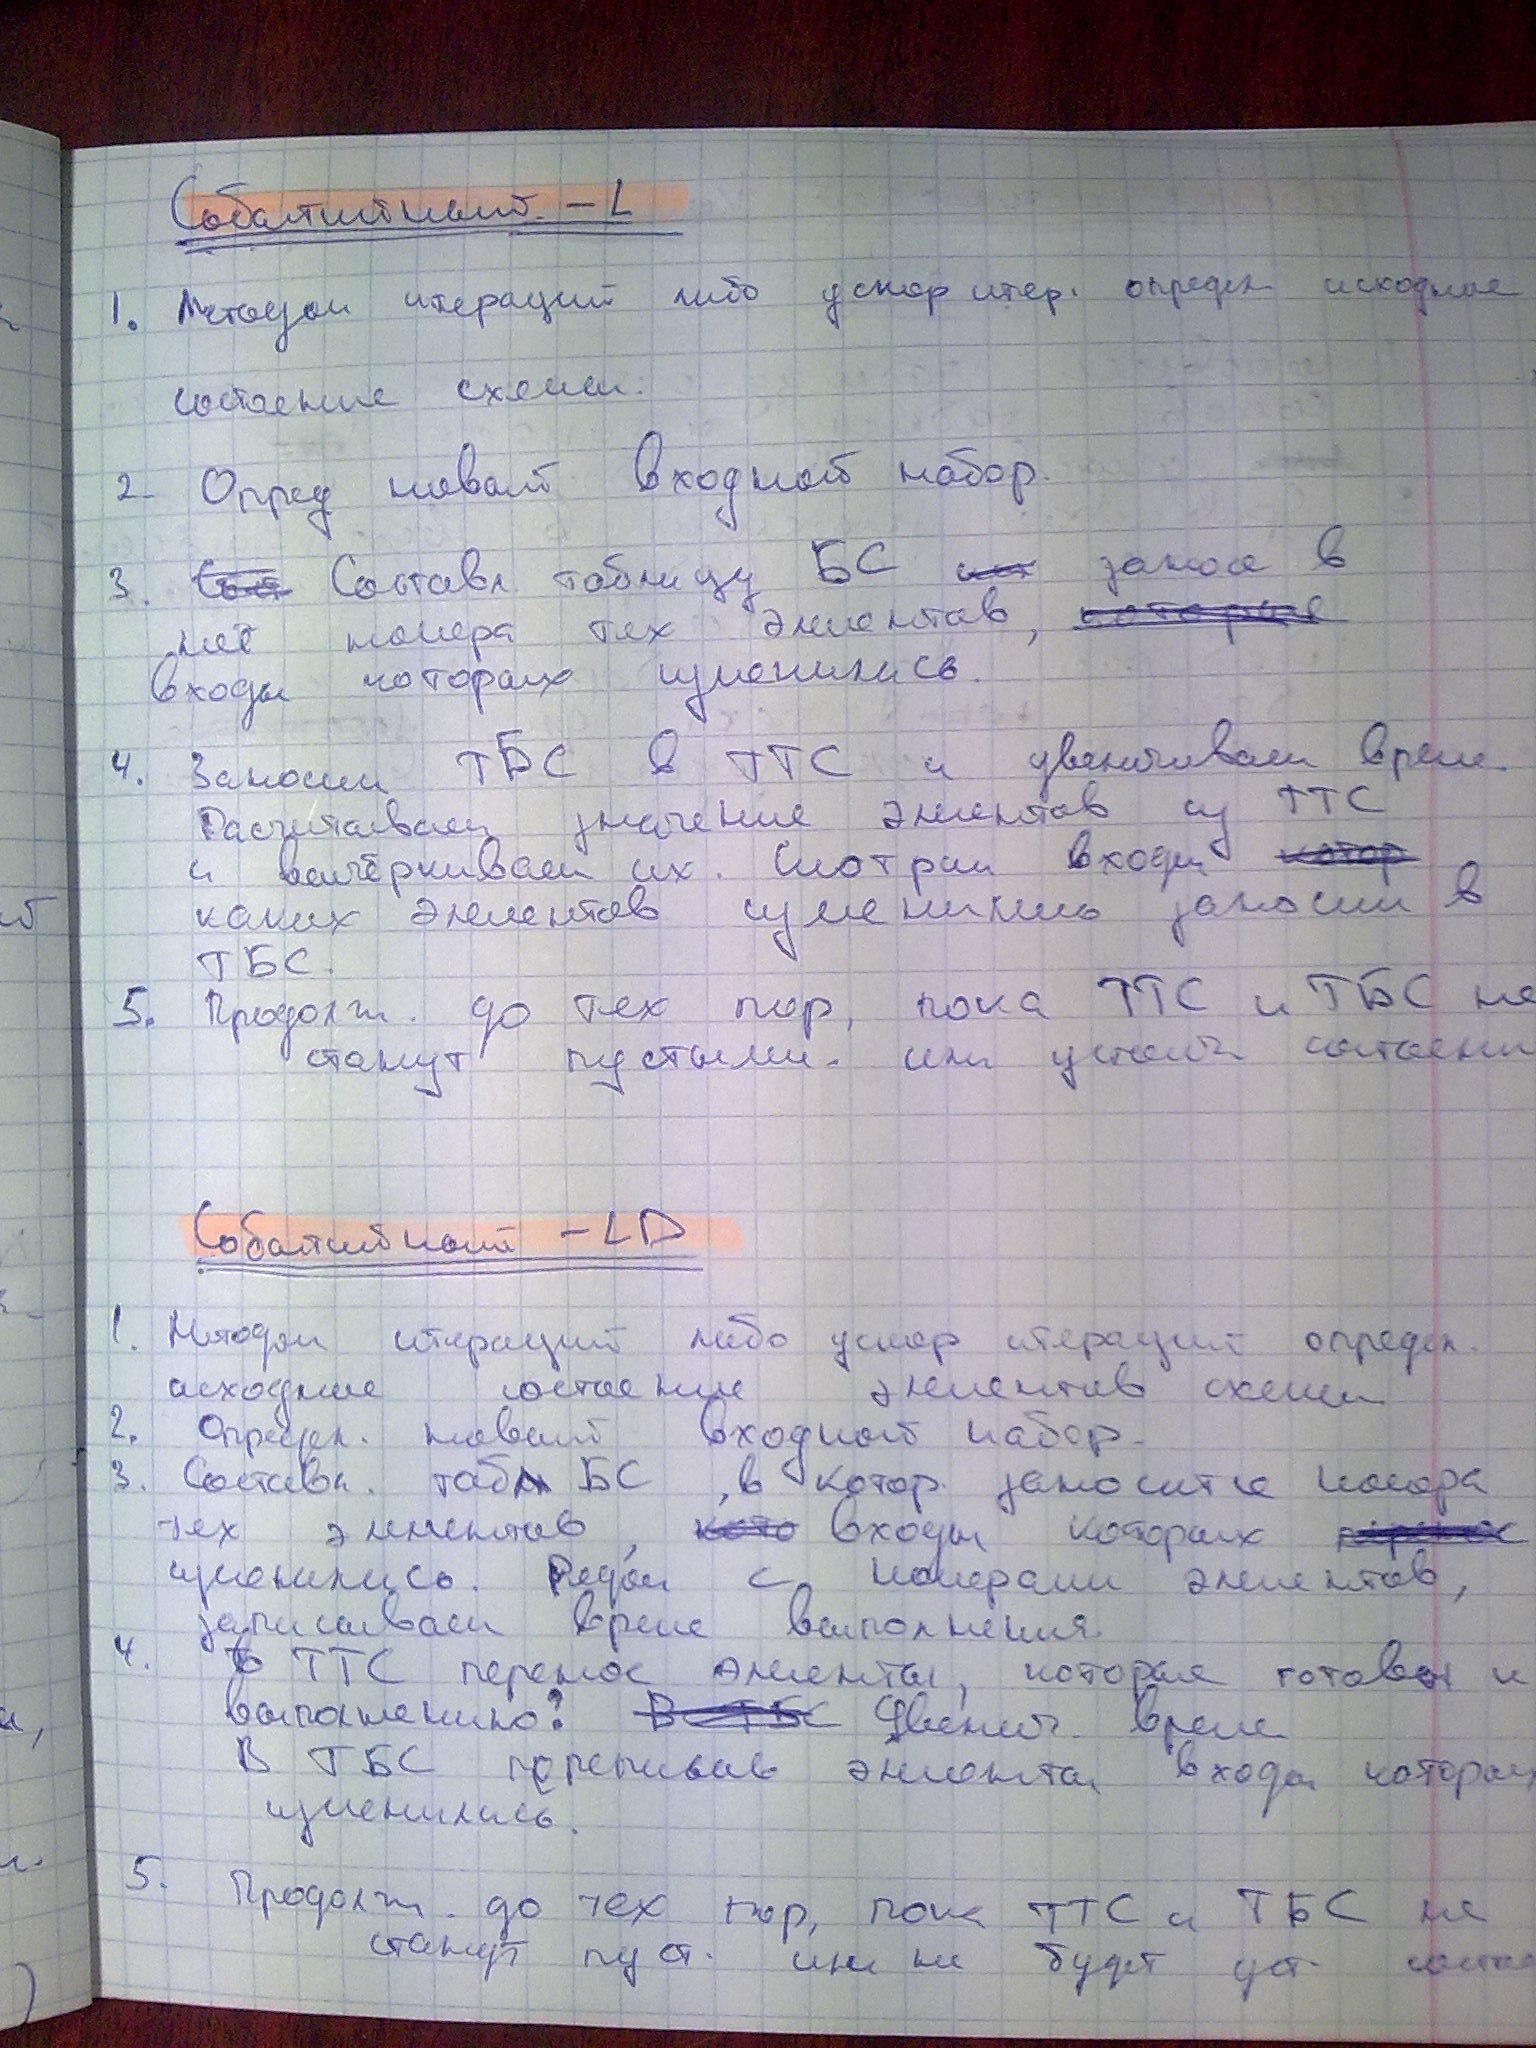 Событийный - L
1. Методом итераций либо ускор итер. определ исходное
состояние схемы.
2 Опред новый входной набор.
3. Составл таблицу БС занося в
неё номера тех элементов,
входы которых изменились.
4. Заносим ТБС в ТТС и увеличиваем время.
Расчитываем значение элементов из ТТС
и вычёркиваем их. Смотрим входы
каких элементов изменились заносим в
ТБС.
5. Продолж. до тех пор, пока ТТС и ТБС не
станут пустыми. или
Событийный - LD
1. Методом итераций либо ускор итераций определ.
исходное состояние элементов схемы
2. Определ. новый входной набор.
3. Составл. табл БС, в котор. заносится номера
тех элементов, входы которых
изменились. Рядом с номерами элементов,
записываем время выполнения.
4. В ТТС перенос элементы, которые готовы к
выполнению. Увелич. время
В ТБС элементы входы которых
изменились.
5. Продолж. до тех пор, пока ТТС и ТБС не
станут пуст. или не будет уст.